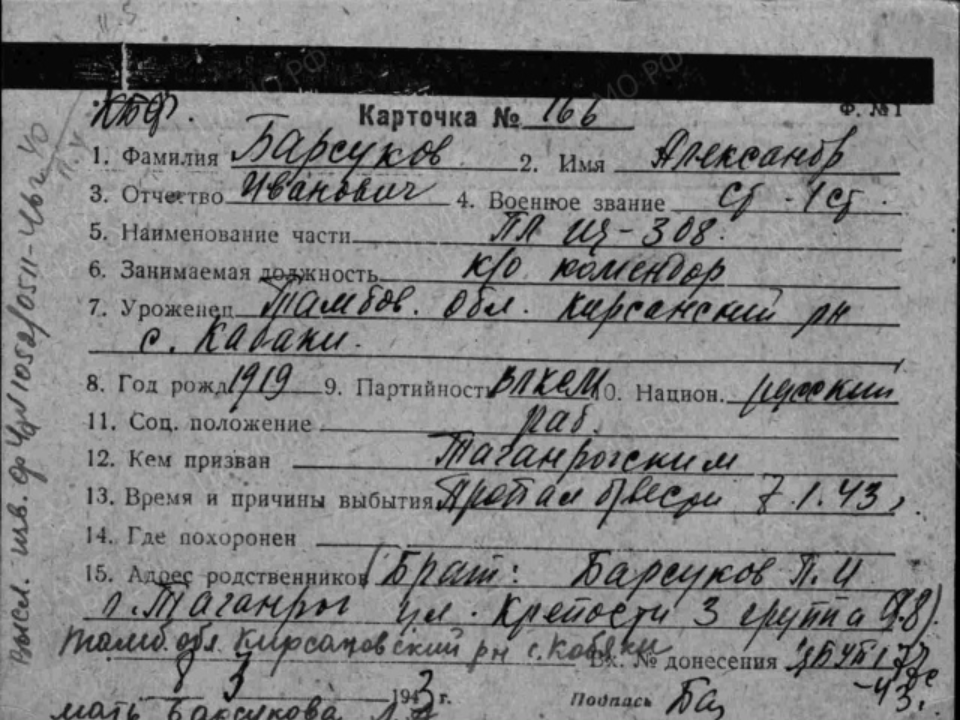 КБФ.
Карточка № 166
Ф. №1
1. Фамилия Барсуков 2. Имя Александр
3. Отчество Иванович 4. Военное звание ст - 1 ст.
5. Наименование части ПЛ Щ-308.
6. Занимаемая должность к/о комендор
7. Уроженец Тамбов. обл. Кирсанский рн
с. Кабаки.
8. Год рожд 1919 9. Партийность ВЛКСМ 10. Национ. русский
11. Соц. положение раб.
12. Кем призван Таганрогским
13. Время и причины выбытия Пропал б/вести 7.1.43
14. Где похоронен
15. Адрес родственников (Брат: Барсуков П.И
г. Таганрог ул. Крепости 3 группа д.8).
Тамб. обл Кирсановский рн с. Кобяки
Вх. № донесения
8 3 1943 г.
Подпись Ба
мать Барсукова